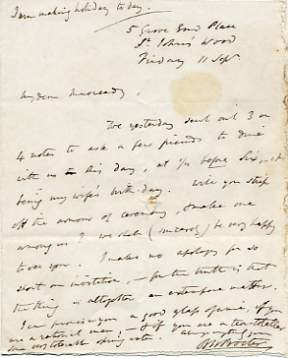 I am making holiday to day.
5 Grove End Place
St. John's Wood
Friday 11 Sept.
My dear Macready,
We yesterday sent out 3 or
4 notes to ask a few friends to dine
with us on this day, at ½ before six, it
being my wife's birth-day. Will you step
off the armour of ceremony, & make one
among us? We shall (sincerely) be very happy
to see you. I make no apology for so
short an invitation, – for the truth is that
the thing is altogether an extempore matter.
I can promise you a good glass of wine, if you
are a water
man, – & if you are a teetotaller
some very tolerable spring water.
B W Procter